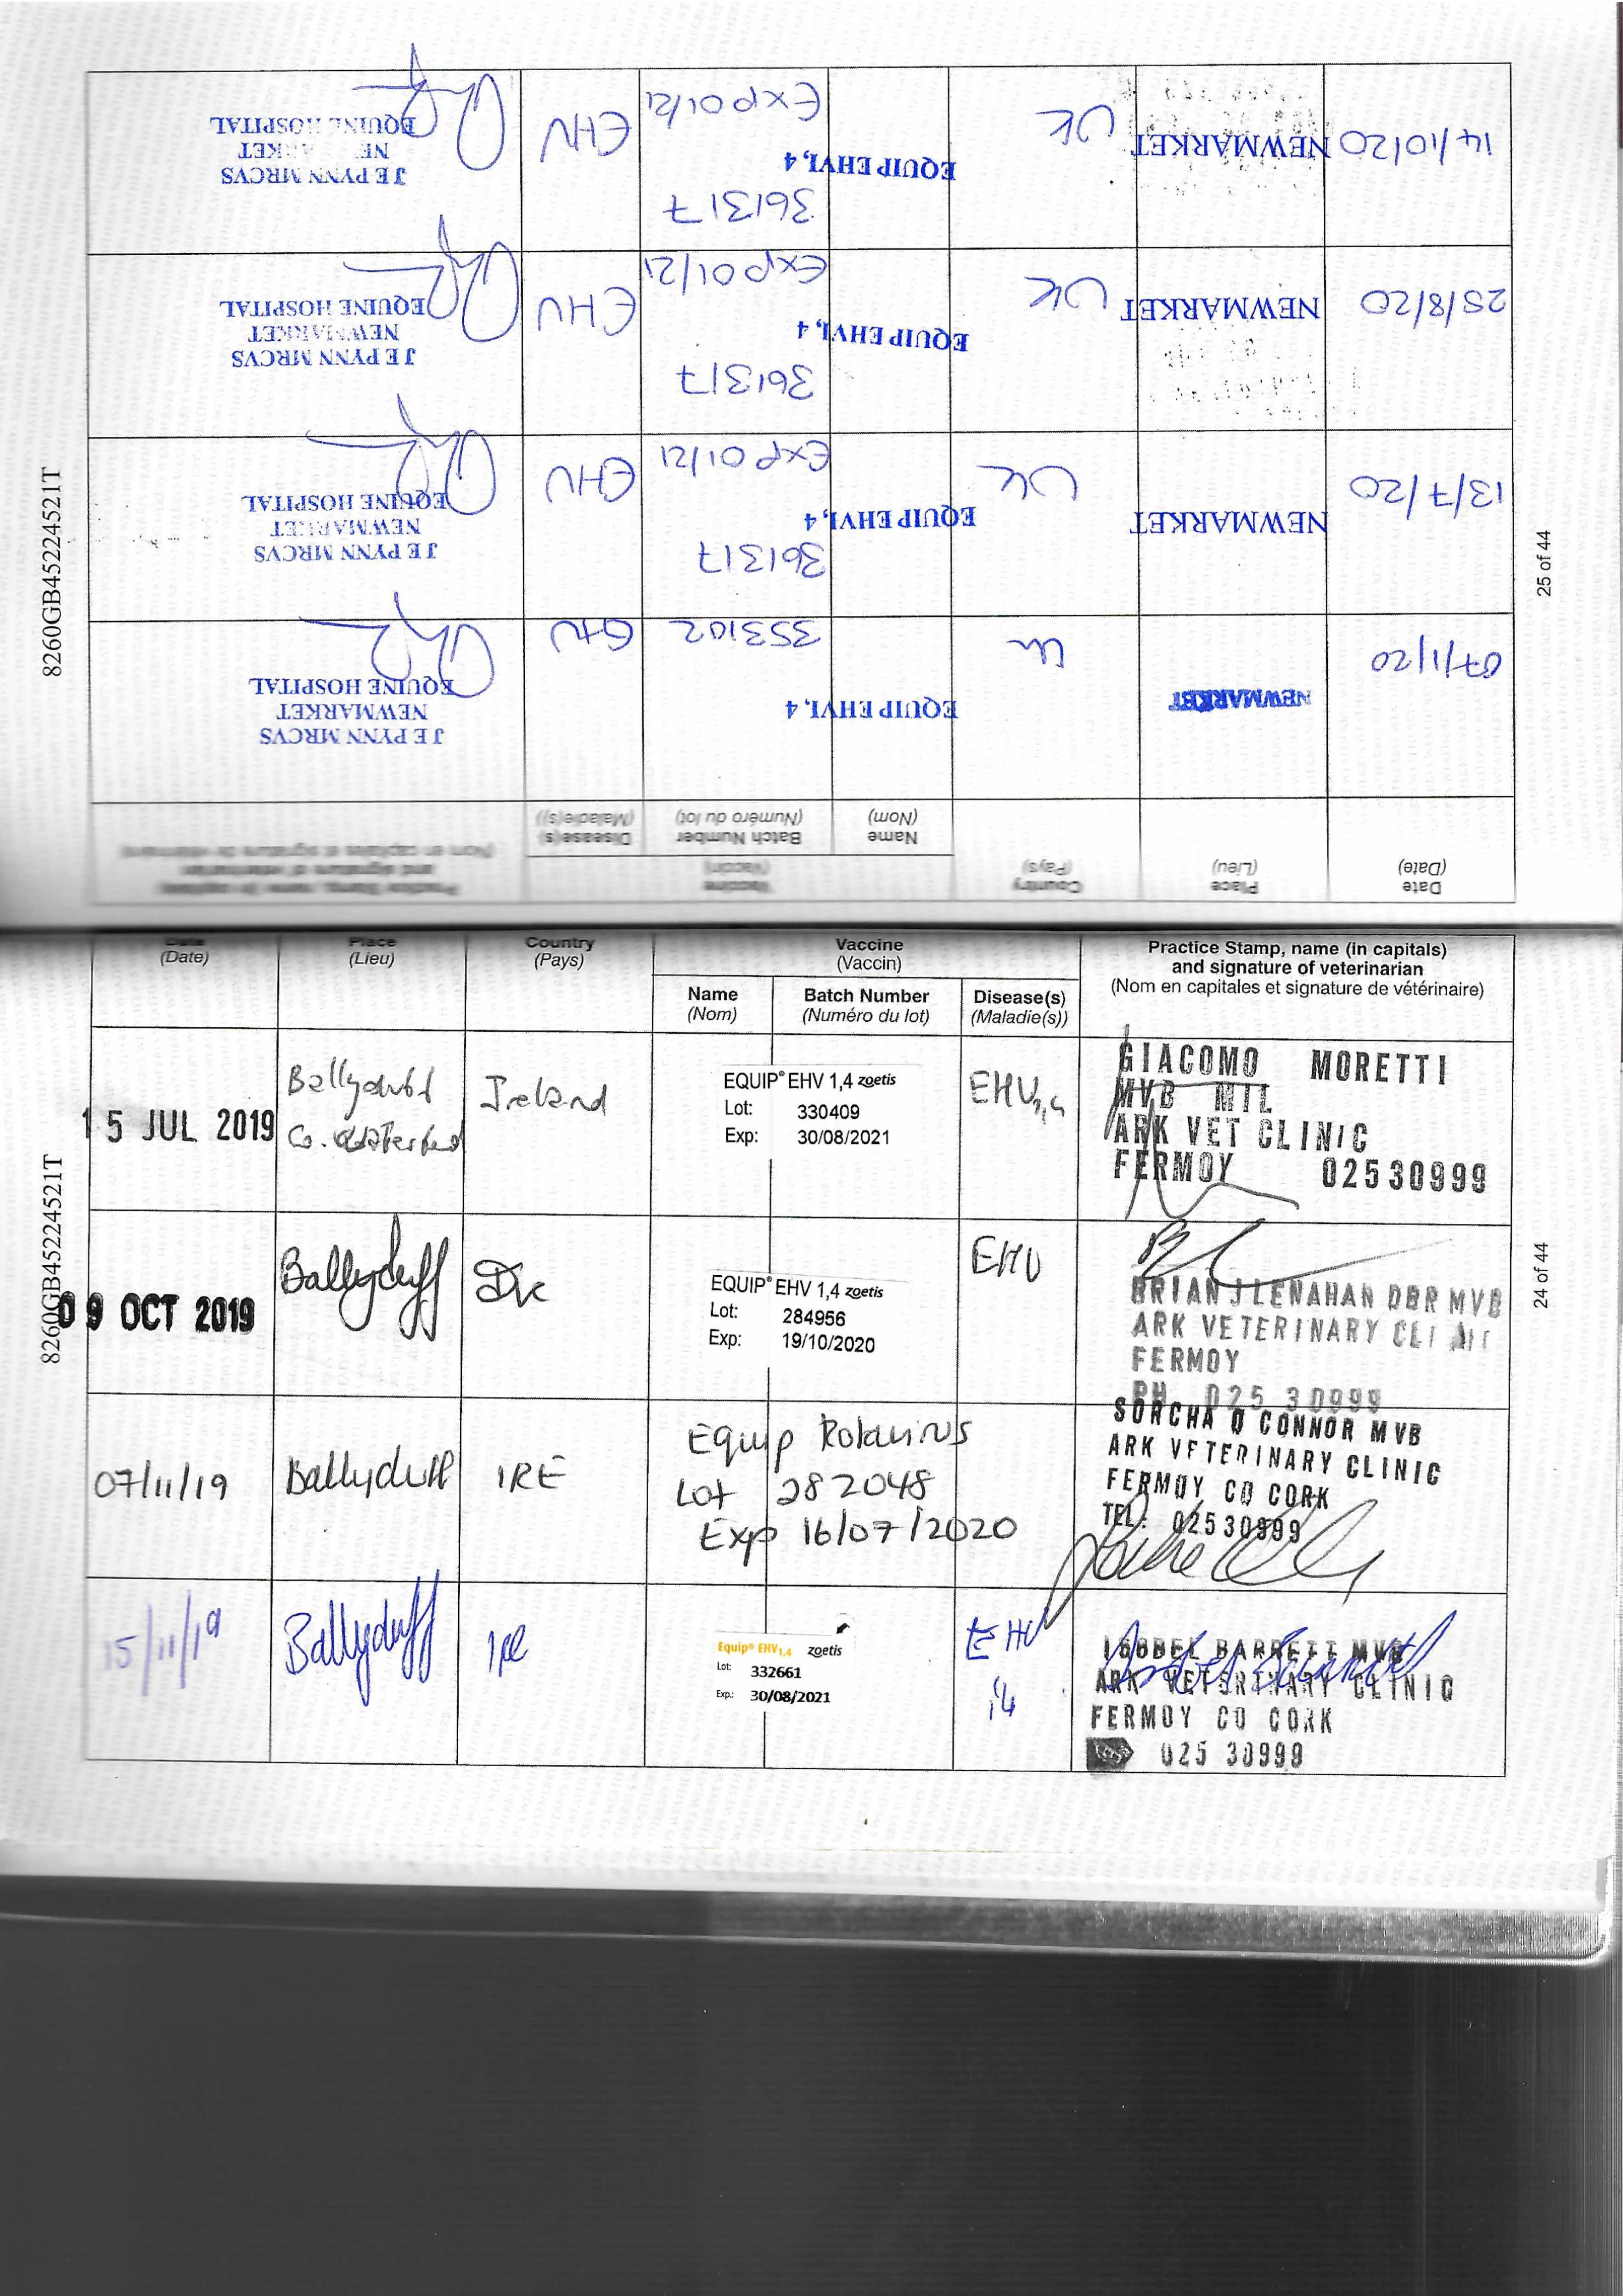 8260GB45224521T
24 of 44
Date
(Date)
Place
(Lieu)
Country
(Pays)
Vaccine
(Vaccin)
Name
(Nom)
Batch Number
(Numéro du lot)
Disease(s)
(Maladie(s))
Practice Stamp, name (in capitals)
and signature of veterinarian
(Nom en capitales et signature de vétérinaire)
15 JUL 2019
Ballyduff
Co. Waterford
Ireland
EQUIP® EHV 1,4 zoetis
Lot: 330409
Exp: 30/08/2021
EHV1,4
GIACOMO MORETTI
MVB MIL
ARK VET CLINIC
FERMOY 02530999
09 OCT 2019
Ballyduff
EQUIP® EHV 1,4 zoetis
Lot: 284956
Exp: 19/10/2020
EHV
BRIAN J LENAHAN DBR MVB
ARK VETERINARY CLINIC
FERMOY
PH 025 30999
07/11/19
Ballyduff
IRE
Equip Rotavirus
Lot 282048
Exp 16/07/2020
SORCHA O CONNOR MVB
ARK VETERINARY CLINIC
FERMOY CO CORK
TEL: 02530999
15/11/19
Ballyduff
IRE
Equip® EHV1,4 zoetis
Lot: 332661
Exp.: 30/08/2021
EHV
1,4
ISOBEL BARRETT MVB
ARK VETERINARY CLINIC
FERMOY CO CORK
025 30999
8260GB45224521T
25 of 44
Date
(Date)
Place
(Lieu)
Country
(Pays)
Vaccine
(Vaccin)
Name
(Nom)
Batch Number
(Numéro du lot)
Disease(s)
(Maladie(s))
Practice Stamp, name (in capitals)
and signature of veterinarian
(Nom en capitales et signature de vétérinaire)
07/1/20
NEWMARKET
UK
EQUIP EHV1, 4
353102
EHV
J E PYNN MRCVS
NEWMARKET
EQUINE HOSPITAL
13/7/20
NEWMARKET
UK
361317
EQUIP EHV1, 4
Exp 01/21
EHV
J E PYNN MRCVS
NEWMARKET
EQUINE HOSPITAL
25/8/20
NEWMARKET
UK
361317
EQUIP EHV1, 4
Exp 01/21
EHV
J E PYNN MRCVS
NEWMARKET
EQUINE HOSPITAL
14/10/20
NEWMARKET
UK
361317
EQUIP EHV1, 4
Exp 01/21
EHV
J E PYNN MRCVS
NEWMARKET
EQUINE HOSPITAL